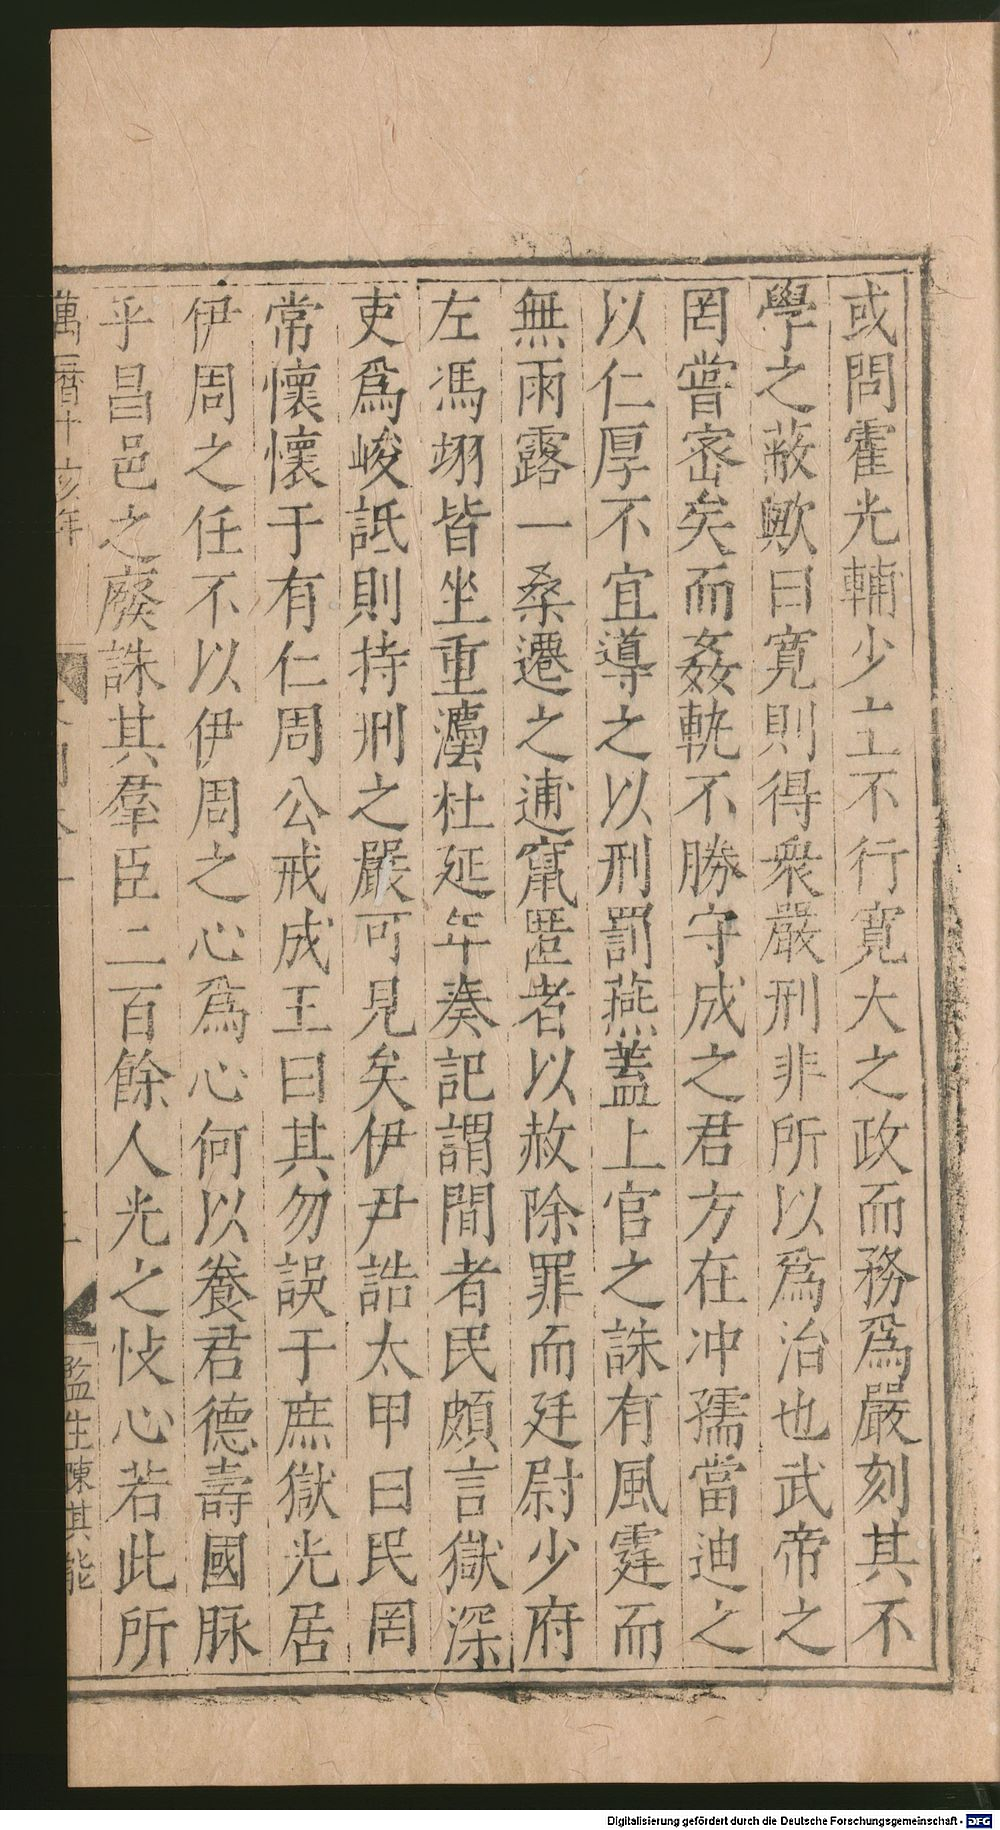 或問霍光輔少主不行寬大之政而務爲嚴刻其不
學之蔽歟曰寬則得衆嚴刑非所以爲治也武帝之
罔嘗密矣而姦軌不勝守成之君方在冲孺當迪之
以仁厚不宜導之以刑罰燕蓋上官之誅有風霆而
無雨露一桑遷之逋竄匿者以赦除罪而廷尉少府
左馮翊皆坐重灋杜延年奏記謂間者民頗言獄深
吏爲峻詆則持刑之嚴可見矣伊尹誥太甲曰民罔
常懷懷于有仁周公戒成王曰其勿誤于庶獄光居
伊周之任不以伊周之心爲心何以養君德壽國脉
乎昌邑之廢誅其羣臣二百餘人光之忮心若此所
萬曆十
年
監生陳其能
Digitalisierung gefördert durch die Deutsche Forschungsgemeinschaft - DFG